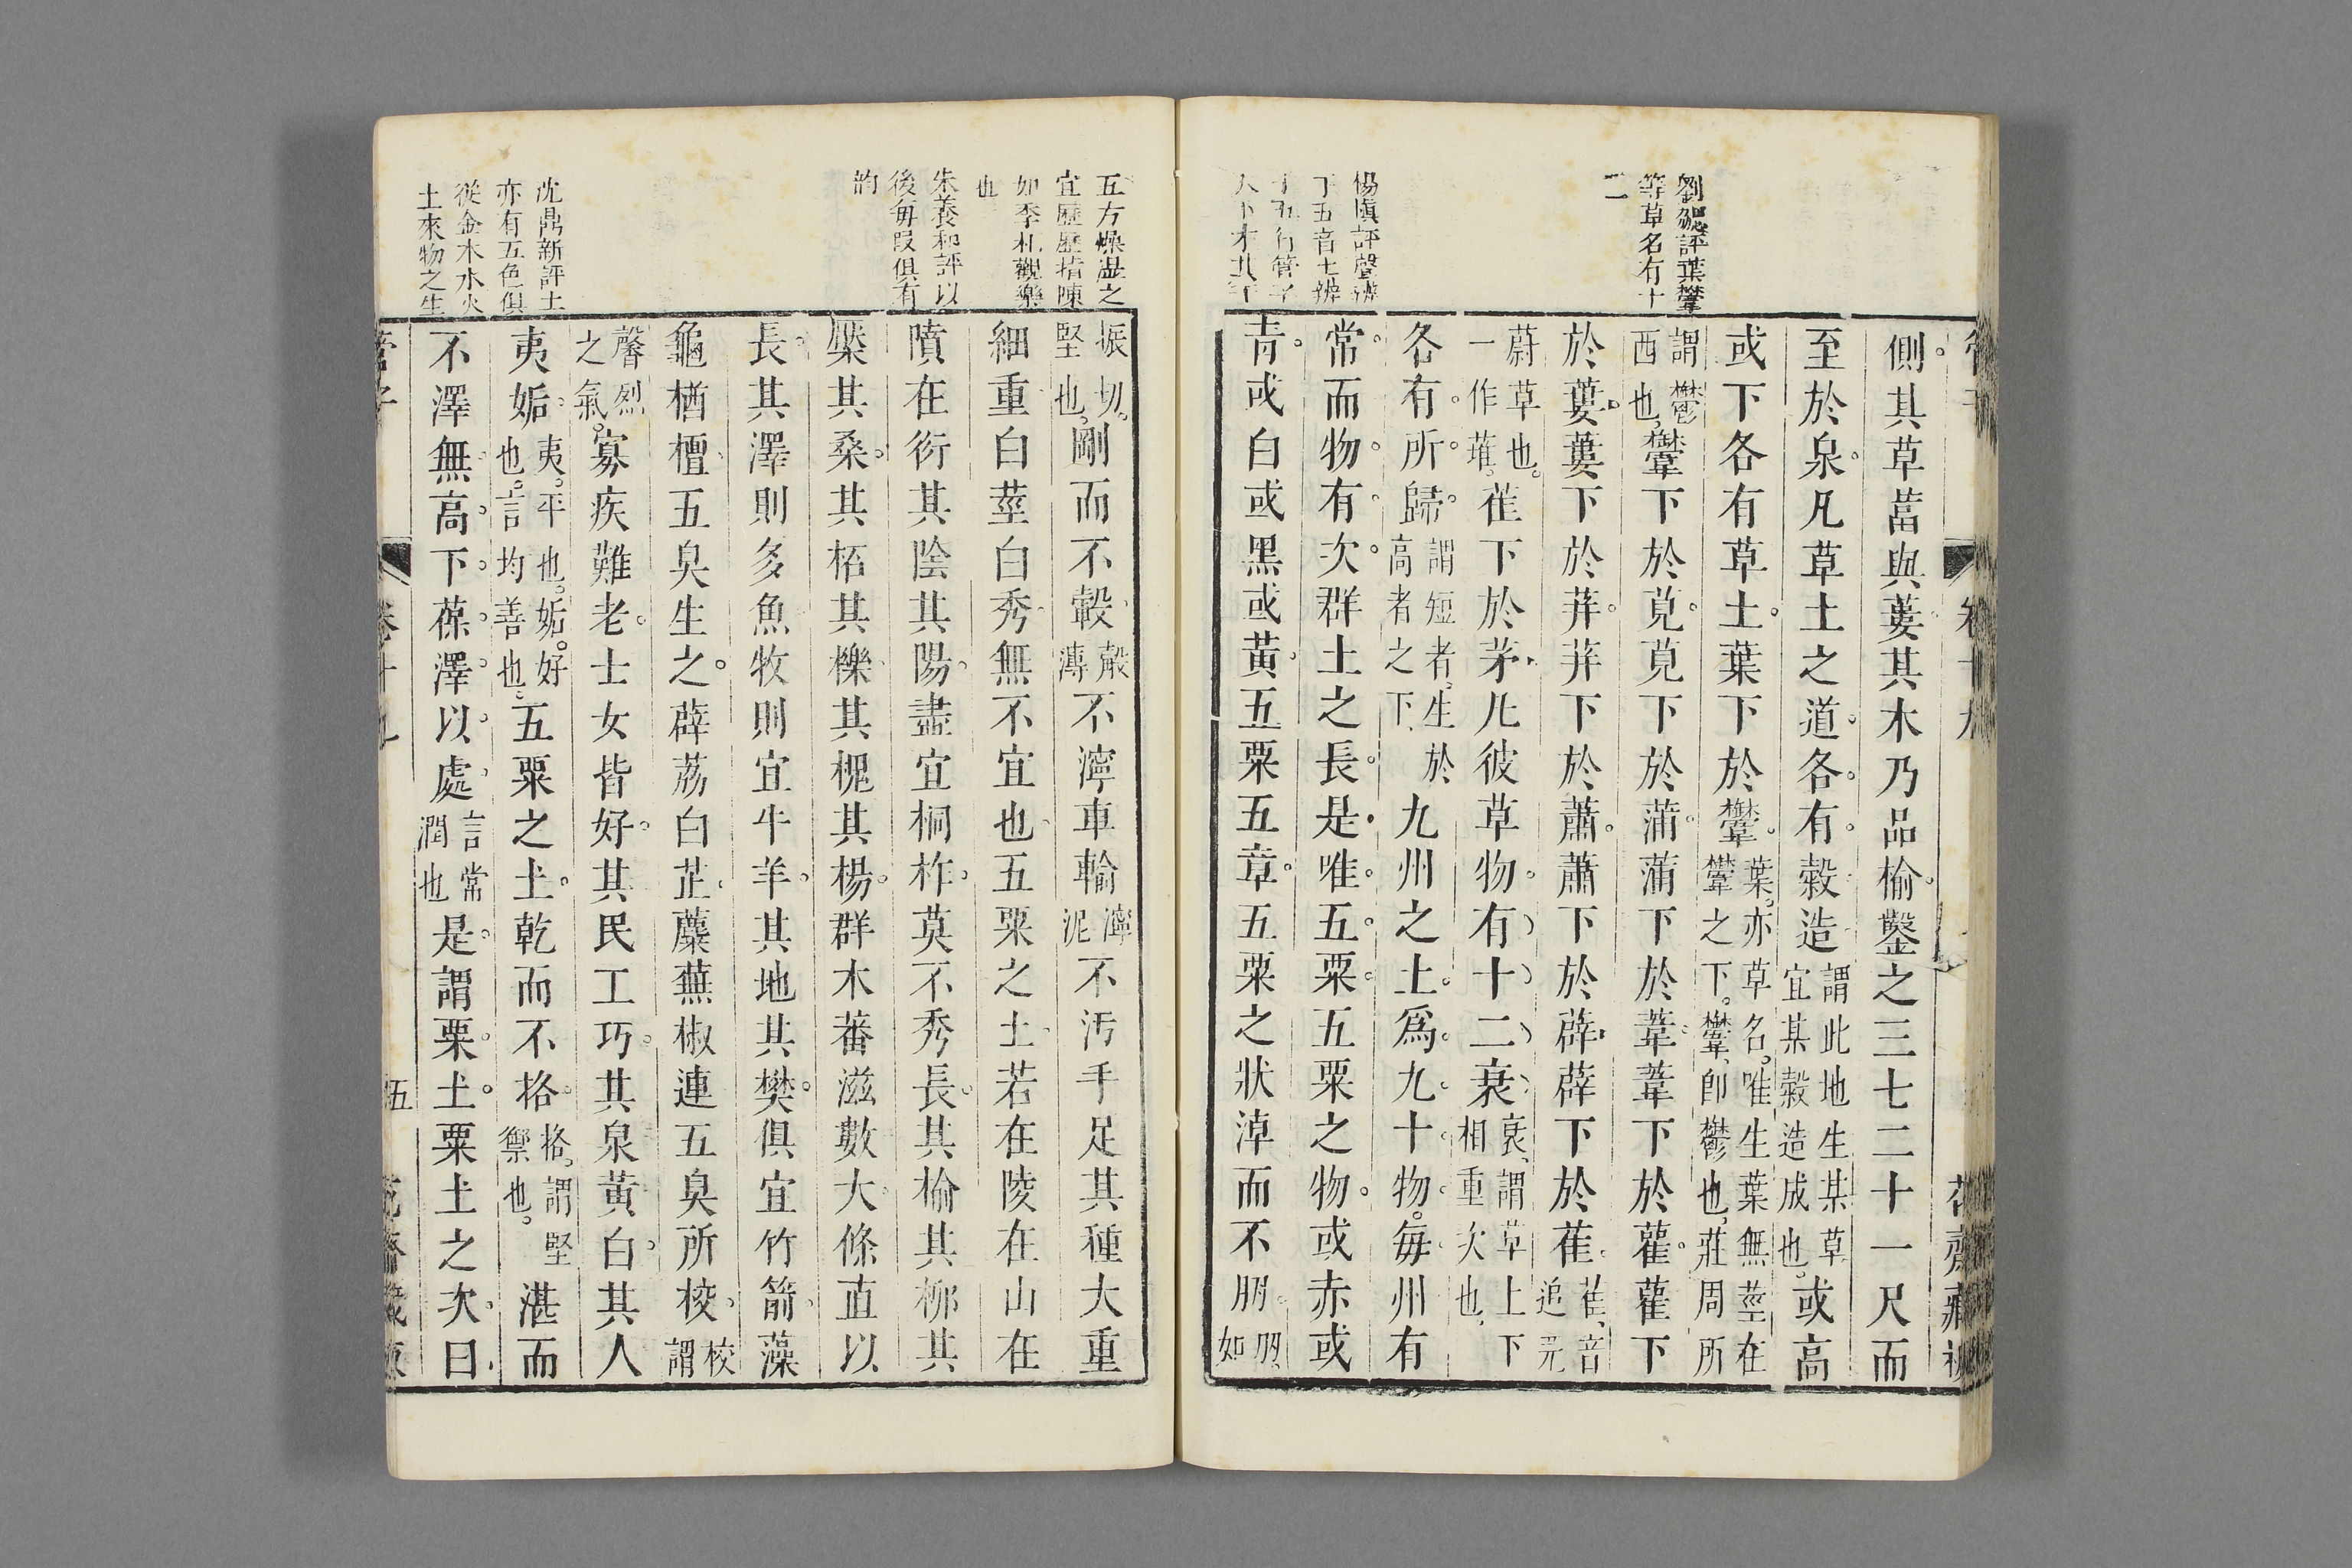 劉勰評葉虆
等草名有十
二
楊愼評聲辨
側其草葍與蔞其木乃品榆鑿之三七二十一尺而
至於泉凡草土之道各有穀造謂此地生某草宜某穀造成也或高
或下各有草土葉下於虆葉亦草名唯生葉無莖在虆之下虆卽鬱也莊周所
謂鬱西也虆下於莧莧下於蒲蒲下於葦葦下於雚雚下
於蔞蔞下於荓荓下於蕭蕭下於薜薜下於萑萑音追
蔚草也一作蓷萑下於茅凡彼草物有十二衰衰謂草上下相重次也
各有所歸謂短者生於高者之下九州之土爲九十物每州有
常而物有次群土之長是唯五粟五粟之物或赤或
青或白或黑或黃五粟五章五粟之狀淖而不肕肕如
五方燥溼之
宜歷歷指陳
如季札觀樂
也
朱養和評以
後每段俱有
韵
沈鼎新評土
亦有五色俱
從金木水火
土來物之生
振切堅也剛而不觳觳薄不濘車輪濘泥不汚手足其種大重
細重白莖白秀無不宜也五粟之土若在陵在山在
隫在衍其陰其陽盡宜桐柞莫不秀長其榆其柳其
檿其桑其柘其櫟其槐其楊群木蕃滋數大條直以
長其澤則多魚牧則宜牛羊其地其樊俱宜竹箭藻
龜楢檀五臭生之薜荔白芷蘪蕪椒連五臭所校校謂
馨烈之氣寡疾難老士女皆好其民工巧其泉黃白其人
夷姤夷平也姤好也言均善也五粟之土乾而不格格謂堅禦也湛而
不澤無高下葆澤以處言常潤也是謂粟土粟土之次曰